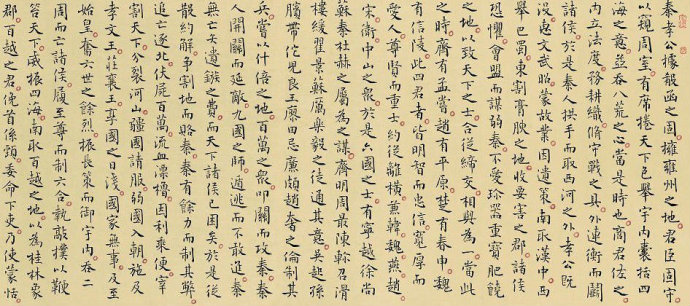 秦孝公據殽函之固擁雍州之地君臣固守
以窺周室有席捲天下包舉宇內囊括四
海之意并吞八荒之心當是時也商君佐之
內立法度務耕織脩守戰之具外連衡而鬭
諸侯於是秦人拱手而取西河之外孝公既
沒惠文武昭蒙故業因遺策南取漢中西
舉巴蜀東割膏腴之地收要害之郡諸侯
恐懼會盟而謀弱秦不愛珍器重寶肥饒
之地以致天下之士合從締交相與為一當此
之時齊有孟嘗趙有平原楚有春申魏
有信陵此四君者皆明智而忠信寬厚而
愛人尊賢而重士約從離橫兼韓魏燕趙
宋衛中山之眾於是六國之士有寧越徐尚
蘇秦杜赫之屬為之謀齊明周最陳軫召滑
樓緩翟景蘇厲樂毅之徒通其意吳起孫
臏帶佗兒良王廖田忌廉頗趙奢之倫制其
兵嘗以什倍之地百萬之眾叩關而攻秦秦
人開關而延敵九國之師遁逃而不敢進秦
無亡矢遺鏃之費而天下諸侯已困矣於是從
散約解爭割地而賂秦秦有餘力而制其弊
追亡逐北伏屍百萬流血漂櫓因利乘便宰
割天下分裂河山彊國請服弱國入朝施及
孝文王莊襄王享國之日淺國家無事及至
始皇奮六世之餘烈振長策而御宇內吞二
周而亡諸侯履至尊而制六合執敲撲以鞭
笞天下威振四海南取百越之地以為桂林象
郡百越之君俛首係頸委命下吏乃使蒙恬